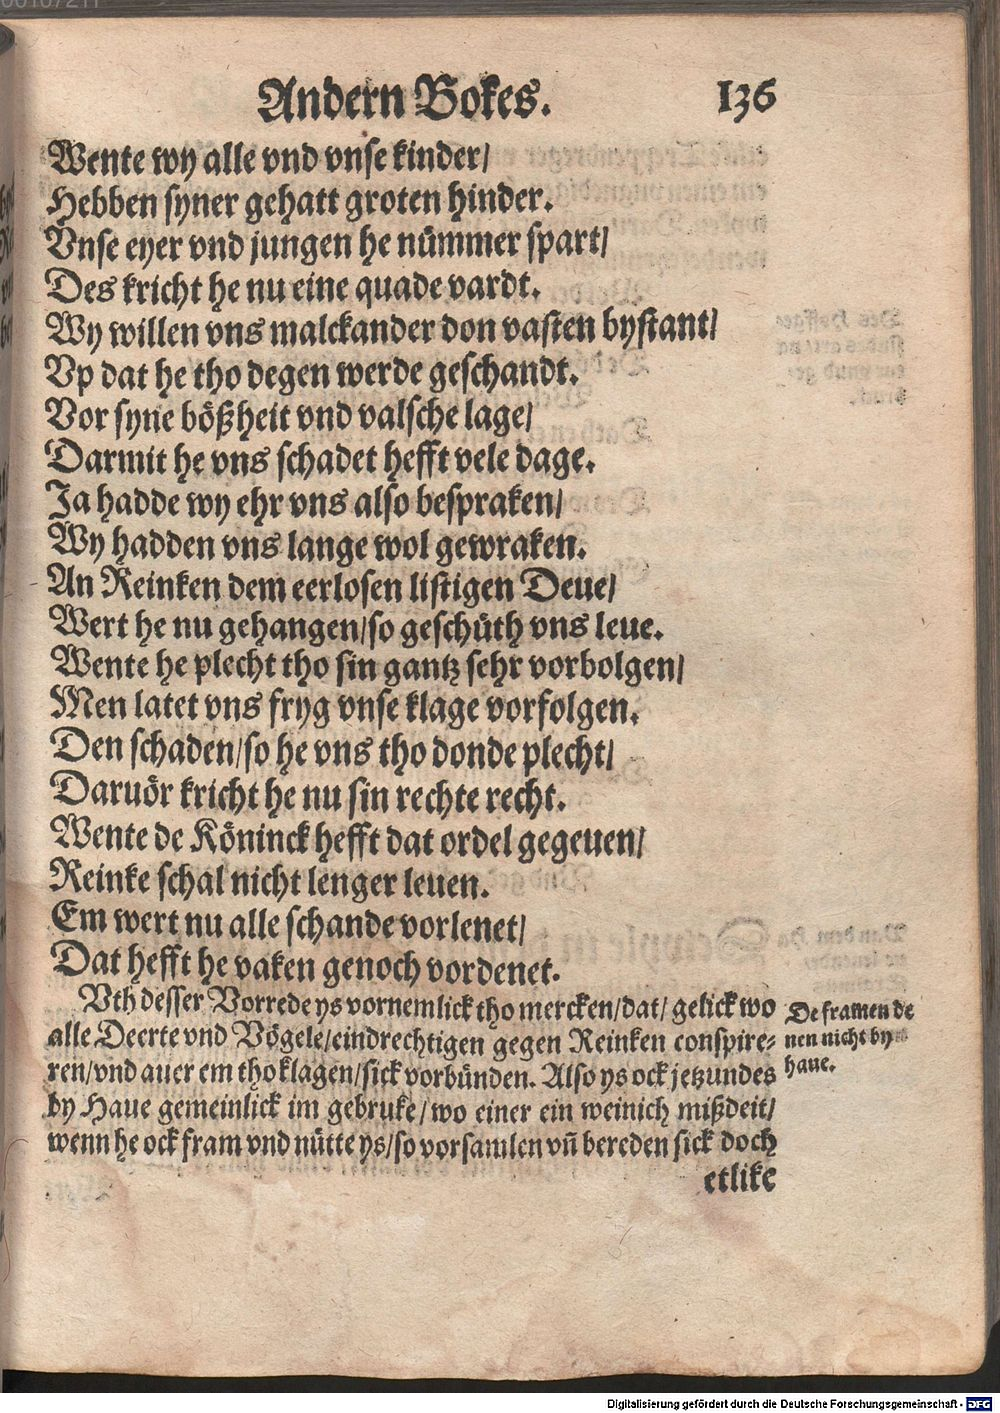 Andern Bokes. 136
Wente wy alle vnd vnse kinder/
Hebben syner gehatt groten hinder.
Vnse eyer vnd jungen he nümmer spart/
Des kricht he nu eine quade vardt.
Wy willen vns malckander don vasten bystant/
Vp dat he tho degen werde geschandt.
Vor syne bößheit vnd valsche lage/
Darmit he vns schadet hefft vele dage.
Ja hadde wy ehr vns also bespraken/
Wy hadden vns lange wol gewraken.
An Reinken dem eerlosen listigen Deue/
Wert he nu gehangen/so geschüth vns leue.
Wente he plecht tho sin gantz sehr vorbolgen/
Men latet vns fryg vnse klage vorfolgen.
Den schaden/so he vns tho donde plecht/
Daruör kricht he nu sin rechte recht.
Wente de Köninck hefft dat ordel gegeuen/
Reinke schal nicht lenger leuen.
Em wert nu alle schande vorlenet/
Dat hefft he vaken genoch vordenet.
Vth desser Vorrede ys vornemlick tho mercken/dat/ gelick wo
alle Deerte vnd Vögele/eindrechtigen gegen Reinken conspire-
ren/vnd auer em tho klagen/sick vorbünden. Also ys ock jetzundes
by Haue gemeinlick im gebruke/wo einer ein weinich mißdeit/
wenn he ock fram vnd nütte ys/so vorsamlen vn̄ bereden sick doch
etlike
De framen de
nen nicht by
haue.
Digitalisierung gefördert durch die Deutsche Forschungsgemeinschaft - DFG